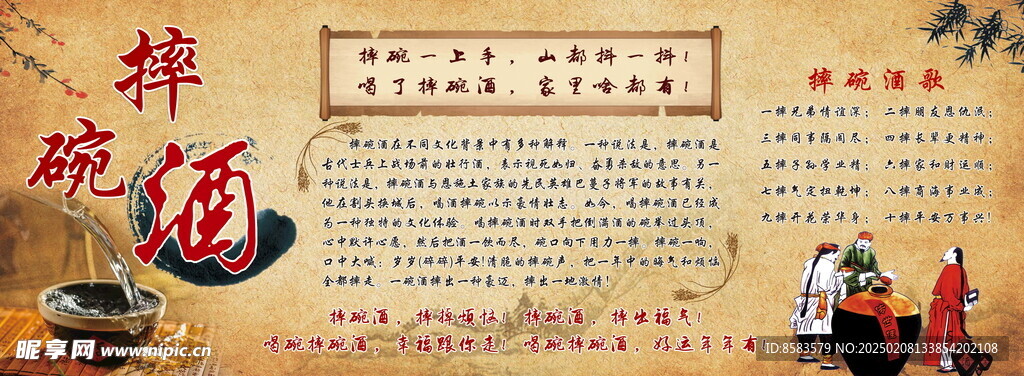 摔
碗
酒
摔碗一上手，山都抖一抖！
喝了摔碗酒，家里啥都有！
摔碗酒在不同文化背景中有多种解释。一种说法是，摔碗酒是
古代士兵上战场前的壮行酒，表示视死如归、奋勇杀敌的意思。另一
种说法是，摔碗酒与恩施土家族的先民英雄巴曼子将军的故事有关，
他在割头换城后，喝酒摔碗以示豪情壮志。如今，喝摔碗酒已经成
为一种独特的文化体验。喝摔碗酒时双手把倒满酒的碗举过头顶，
心中默许心愿，然后把酒一饮而尽，碗口向下用力一摔。摔碗一响，
口中大喊：岁岁(碎碎)平安!清脆的摔碗声，把一年中的晦气和烦恼
全都摔走。一碗酒摔出一种豪迈，摔出一地激情！
摔碗酒，摔掉烦恼！摔碗酒，摔出福气！
喝碗摔碗酒，幸福跟你走！喝碗摔碗酒，好运年年有！
摔碗酒歌
一摔兄弟情谊深；二摔朋友恩仇泯；
三摔同事隔阂尽；四摔长辈更精神；
五摔子孙学业精；六摔家和财运顺；
七摔气定担乾坤；八摔商海事业成；
九摔开花荣华身；十摔平安万事兴！
昵享网 www.nipic.cn
ID:8583579 NO:20250208133854202108